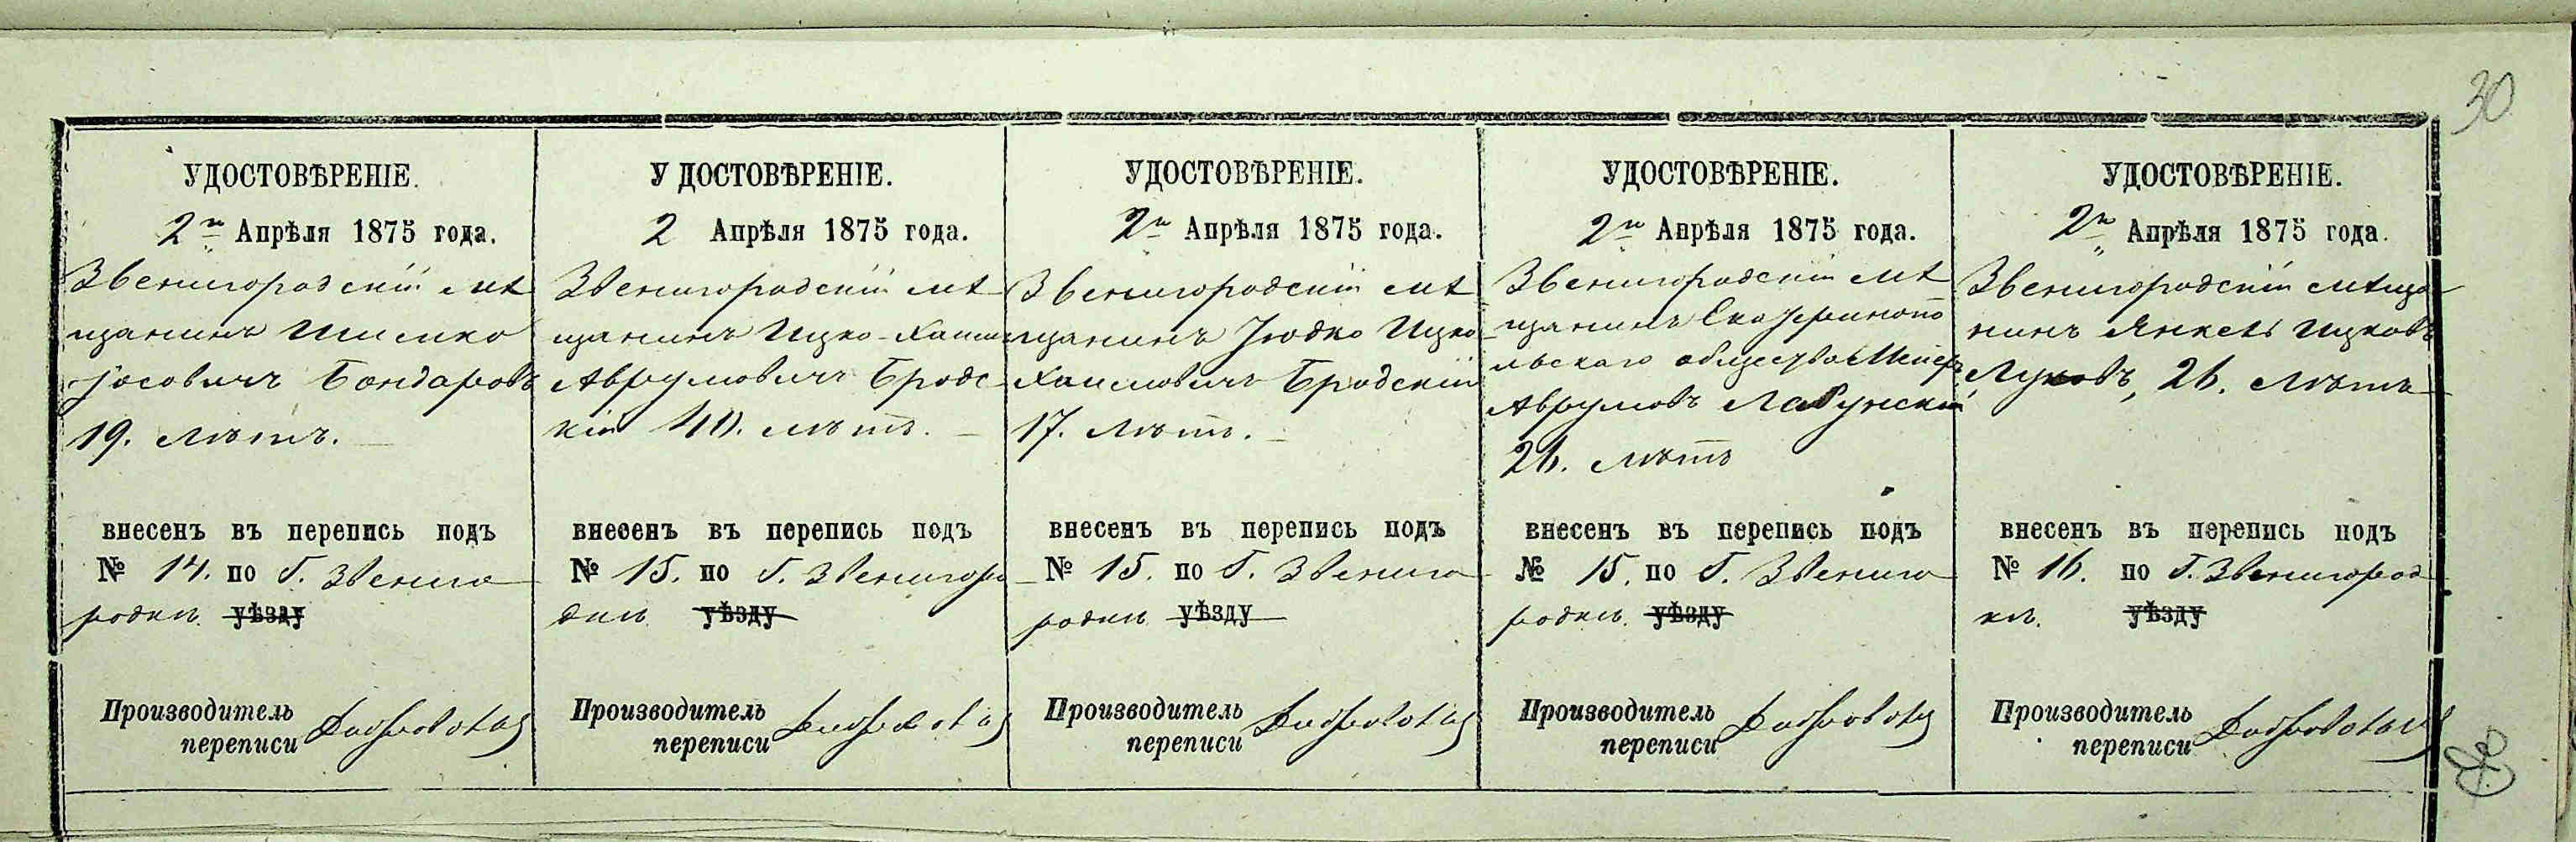 30
УДОСТОВѢРЕНІЕ.
2го Апрѣля 1875 года.
Звенигородскій мѣ
щанинъ Шимко
Іосовичъ Бондаровъ
19. лѣтъ.
внесенъ въ перепись подъ
№ 14. по Г. Звениго
родкѣ уѣзду
Производитель
переписи
УДОСТОВѢРЕНІЕ.
2 Апрѣля 1875 года.
Звенигородскій мѣ
щанинъ Ицко-Хаим
Аврумовичъ Бродс
кій 40. лѣтъ.
внесенъ въ перепись подъ
№ 15. по Г. Звенигоро
дкѣ уѣзду
Производитель
переписи
УДОСТОВѢРЕНІЕ.
2го Апрѣля 1875 года.
Звенигородскій мѣ
щанинъ Іюдко Ицко
Хаимовичъ Бродскій
17. лѣтъ.
внесенъ въ перепись подъ
№ 15. по Г. Звениго
родкѣ уѣзду
Производитель
переписи
УДОСТОВѢРЕНІЕ.
2го Апрѣля 1875 года.
Звенигородскій мѣ
щанинъ Екатеринопо
льскаго общества Мейеръ
Аврумовъ Лабунскій
26. лѣтъ
внесенъ въ перепись подъ
№ 15. по Г. Звениго
родкѣ. уѣзду
Производитель
переписи
УДОСТОВѢРЕНІЕ.
2го Апрѣля 1875 года.
Звенигородскій мѣща
нинъ Янкель Ицковъ
26. лѣтъ
внесенъ въ перепись подъ
№ 16. по Г. Звенигород
кѣ. уѣзду
Производитель
переписи